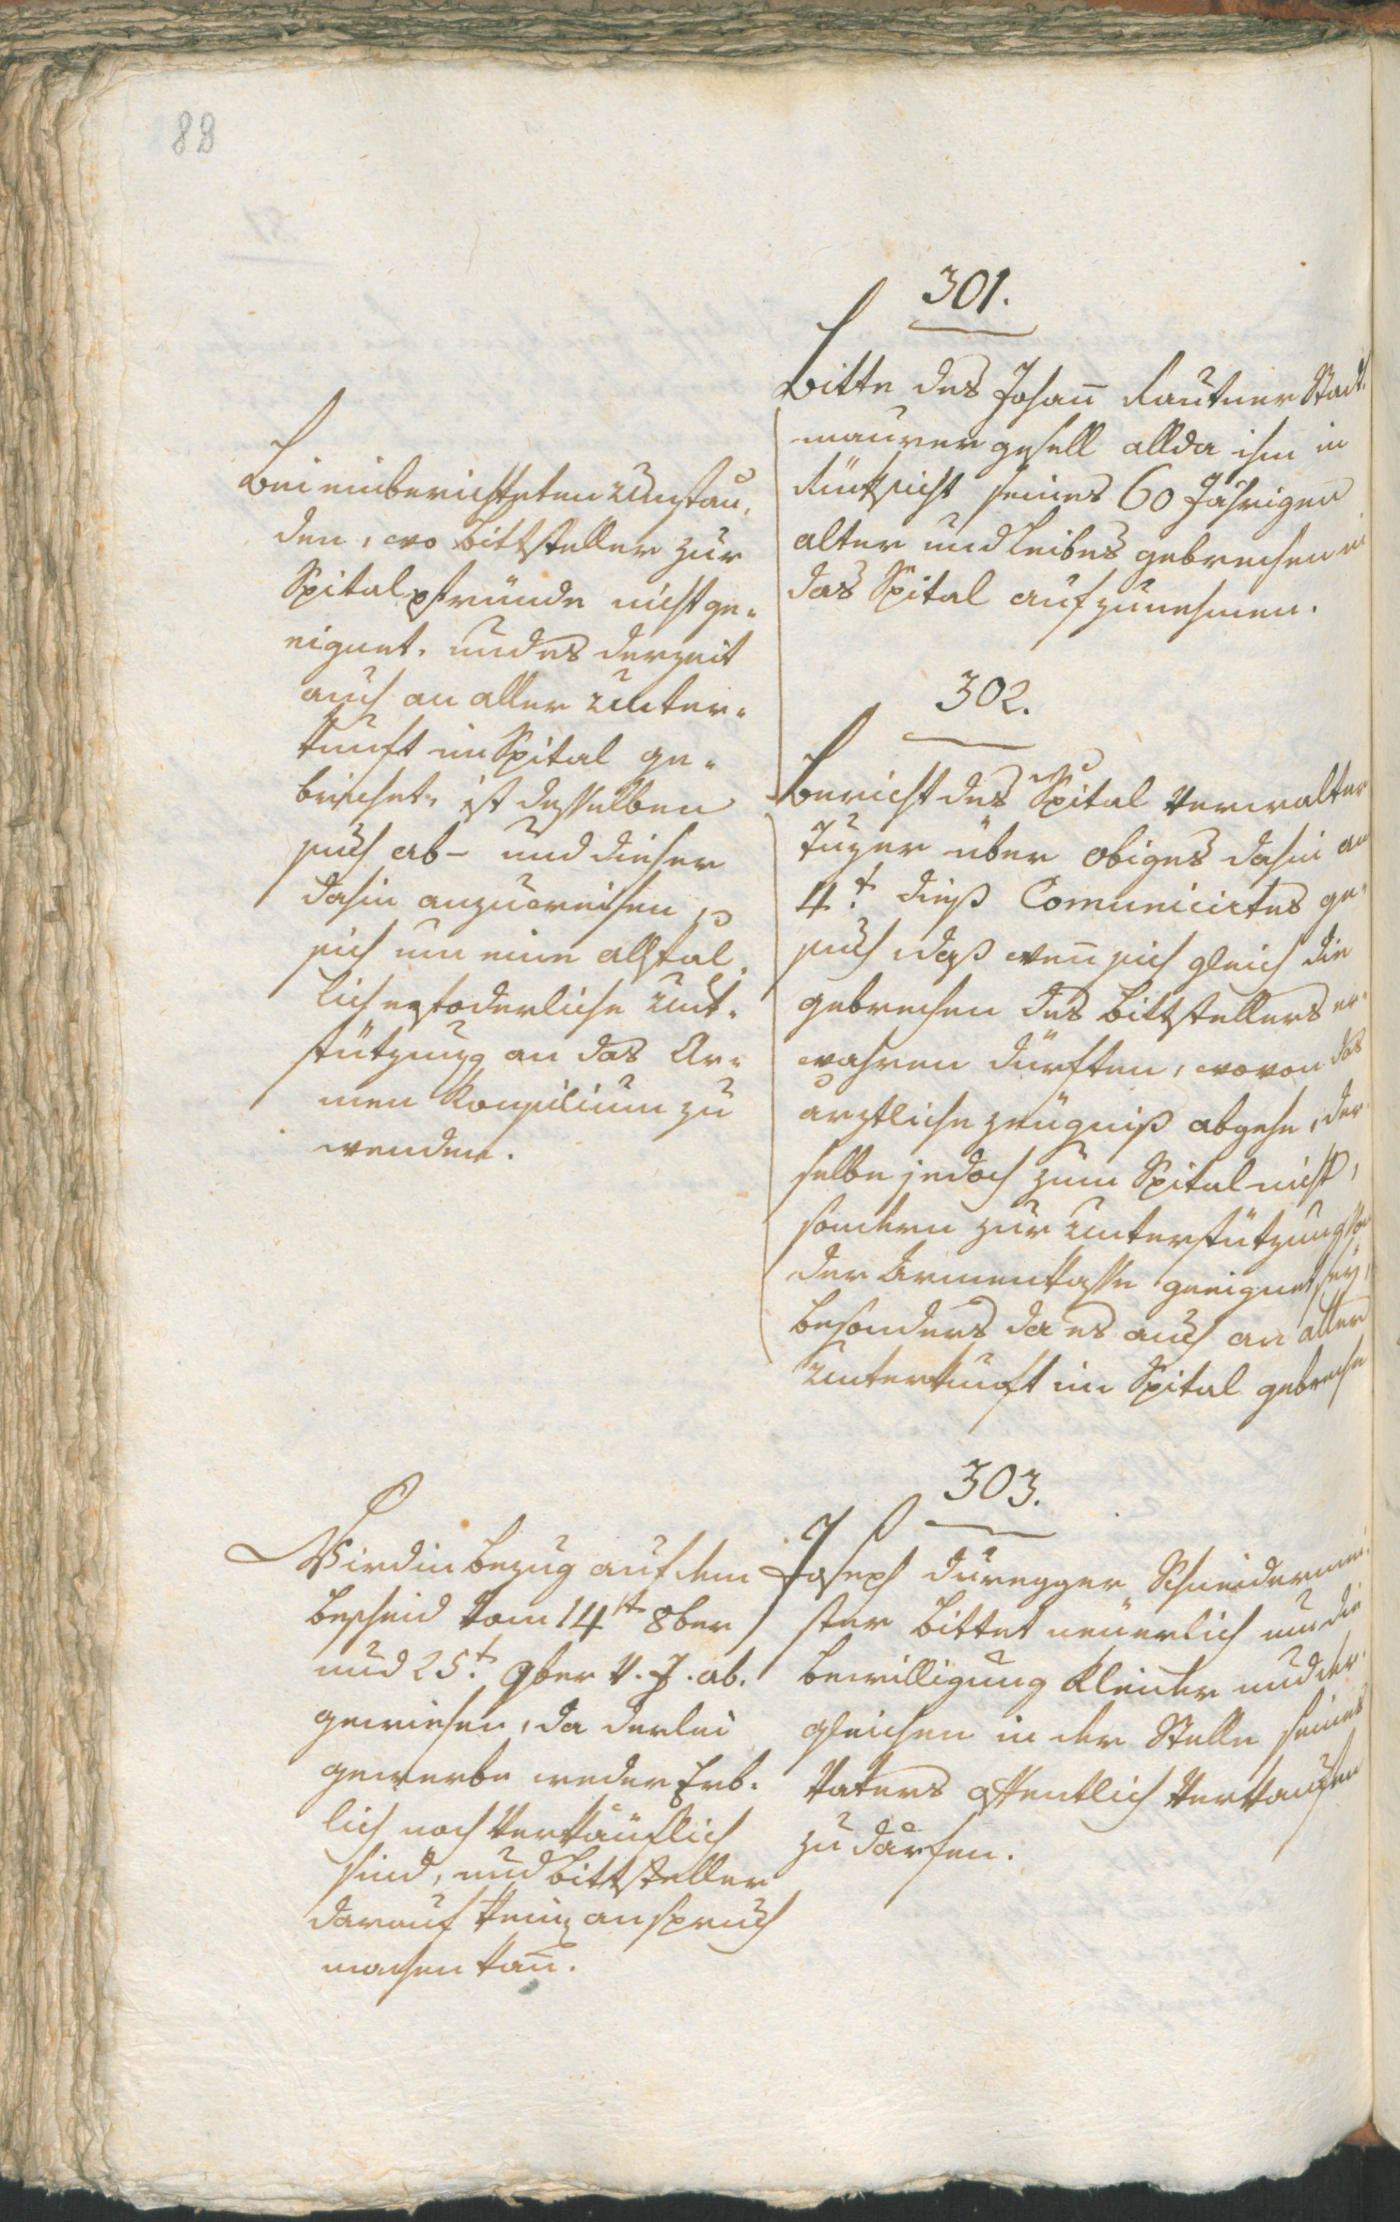 88
301.
Bitte des Johañ Rautner Stadt
maurer gesell allda ihn in
Rücksicht seines 60 Jährigen
alter und Leibes gebrechen in
das Spital aufzunehmen.
Bei einberichteten Umstän,
den, wo Bittsteller zur
Spitalpfründe nicht ge-
eignet, und es derzeit
auch an aller Unter-
kunft im Spital ge-
bricht, ist desselben
such ab- und dieser
dahin anzuweisen
sich um eine allfäl
lich erfoderliche Unt-
stützung an das Ar-
men Konsilium zu
wenden.
302.
Bericht des Spital Verwalter
über obiges dahin am
4t. dieß Comunicirtes ge-
such, daß weñ sich gleich die
gebrechen des Bittstellers er-
wahren dürften, wovon das
ärztliche Zeugniß abgehe, der
selbe jedoch zum Spital nicht,
sondern zur Unterstützung von
der Armenkasse geeignet sey,
besonders da es auch an aller
Unterkunft im Spital gebreche
303.
Joseph Duregger Schneidermei
ster bittet neuerlich um die
bewilligung Kleider und der
gleichen in der Stelle seines
Vaters öffentlich verkaufen
zu därfen.
Wird in bezug auf dem
bescheid vom 14t 8ber
und 25t. 9ber v. J. ab.
gewiesen, da derlei
gewerbe weder Erb-
lich noch verkäuflich
sind, und Bittsteller
darauf kein anspruch
machen kañ.